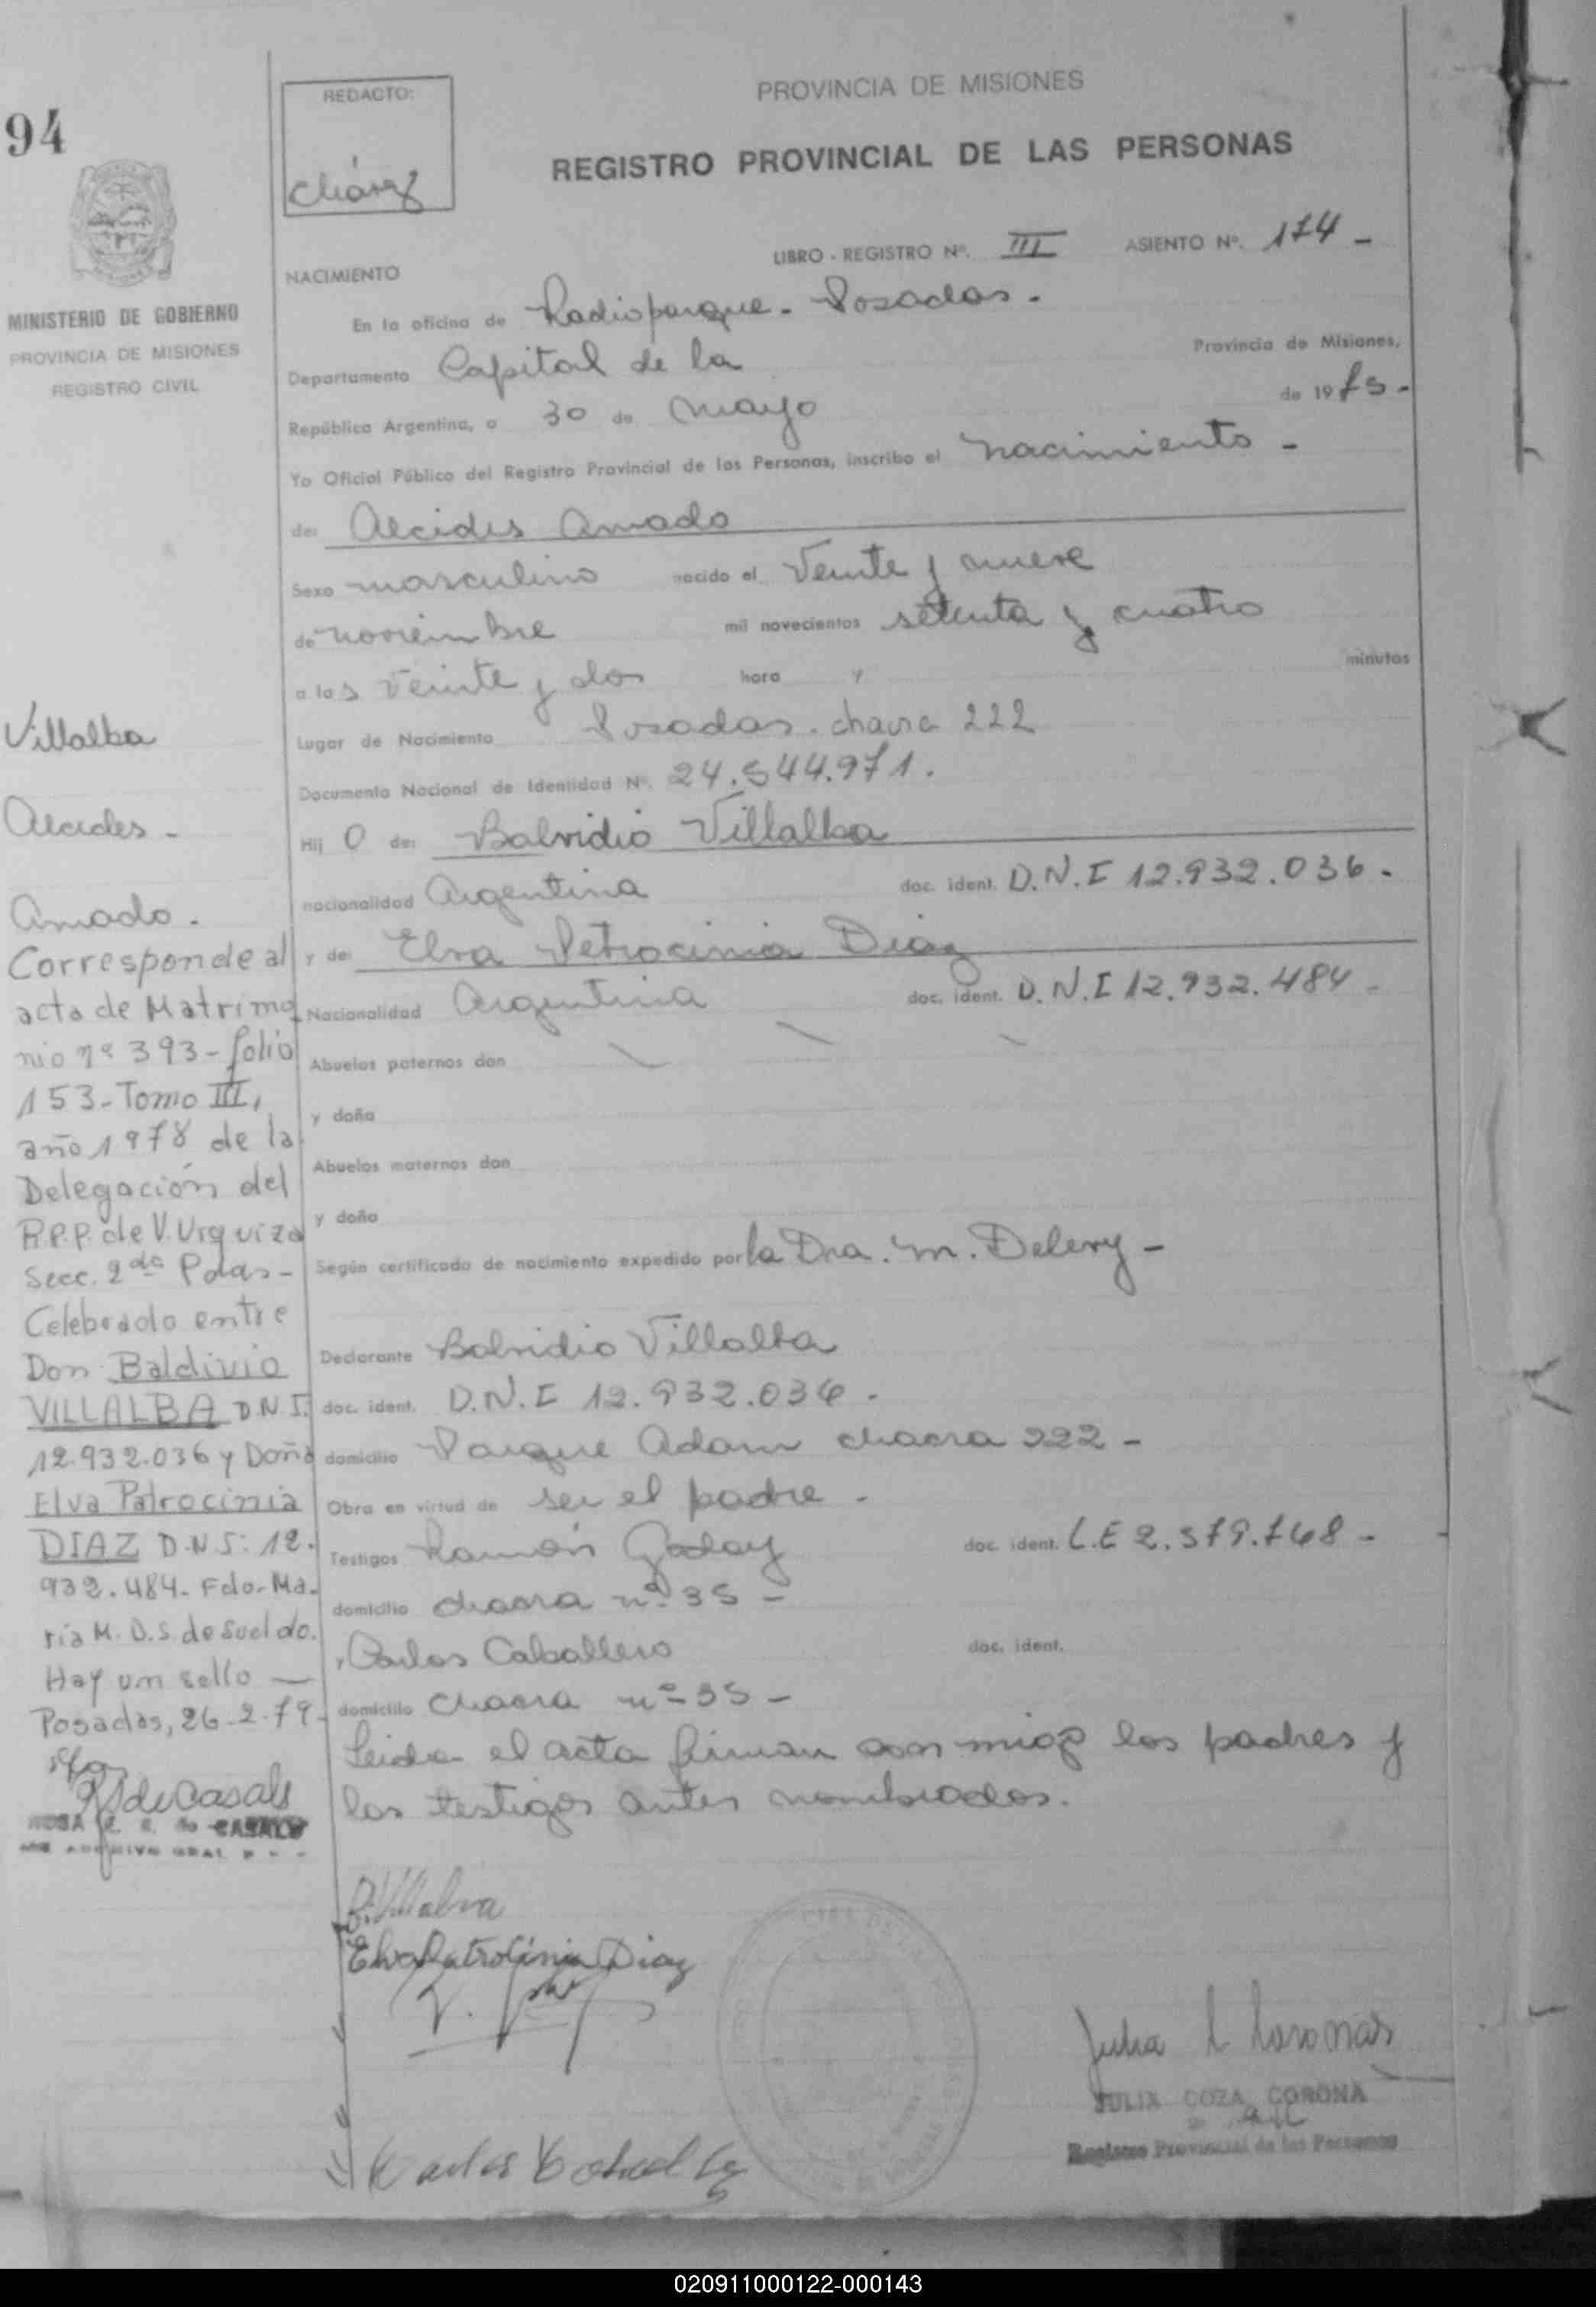 94
REDACTO:
Cháves
PROVINCIA DE MISIONES
REGISTRO PROVINCIAL DE LAS PERSONAS
LIBRO - REGISTRO Nº. III ASIENTO Nº. 174 -
NACIMIENTO
MINISTERIO DE GOBIERNO
PROVINCIA DE MISIONES
REGISTRO CIVIL
En la oficina de Radioparque - Posadas.
Departamento Capital de la Provincia de Misiones,
República Argentina, a 30 de mayo de 1975.-
Yo Oficial Público del Registro Provincial de las Personas, inscribo el nacimiento -
de: Alcides Amado
Sexo masculino nacido el Veinte y nueve
de noviembre mil novecientos setenta y cuatro
a las veinte y dos hora y minutos
Lugar de Nacimiento Posadas. chacra 222
Documento Nacional de Identidad Nº. 24.544.971.
Hij o de: Balvidio Villalba
nacionalidad Argentina doc. ident. D.N.I 12.932.036.-
y de: Elva Petrocinia Diaz
Nacionalidad Argentina doc. ident. D.N.I 12.932.484 -
Abuelos paternos don
y doña
Abuelos maternos don
y doña
Según certificado de nacimiento expedido por la Dra. M. Delery -
Declarante Balvidio Villalba
doc. ident. D.N.I 12.932.036 -
domicilio Parque Adam chacra 222 -
Obra en virtud de ser el padre -
Testigos Ramón Godoy doc. ident. L.E 2.579.748 -
domicilio chacra nº 35 -
y Carlos Caballero doc. ident.
domicilio chacra nº 35 -
Leida el acta firman con migo los padres y
los testigos antes nombrados.
Villalba
Alcides -
Amado.
Corresponde al
acta de Matrimo
nio nº 393 - folio
153 - Tomo III,
año 1978 de la
Delegación del
R.P.P. de V. Urquiza
Secc. 2da Pdas -
Celebrado entre
Don Baldivio
VILLALBA D.N.I.
12.932.036 y Doña
Elva Patrocinia
DIAZ D.N.I: 12.
932.484. Fdo. Ma-
ría M. D.S. de Sueldo.
Hay un sello —
Posadas, 26-2-79-
de Casals
B. Villalva
Elva Patrocinia Diaz
Julia
JULIA COZA CORONA
Registro Provincial de las Personas
020911000122-000143